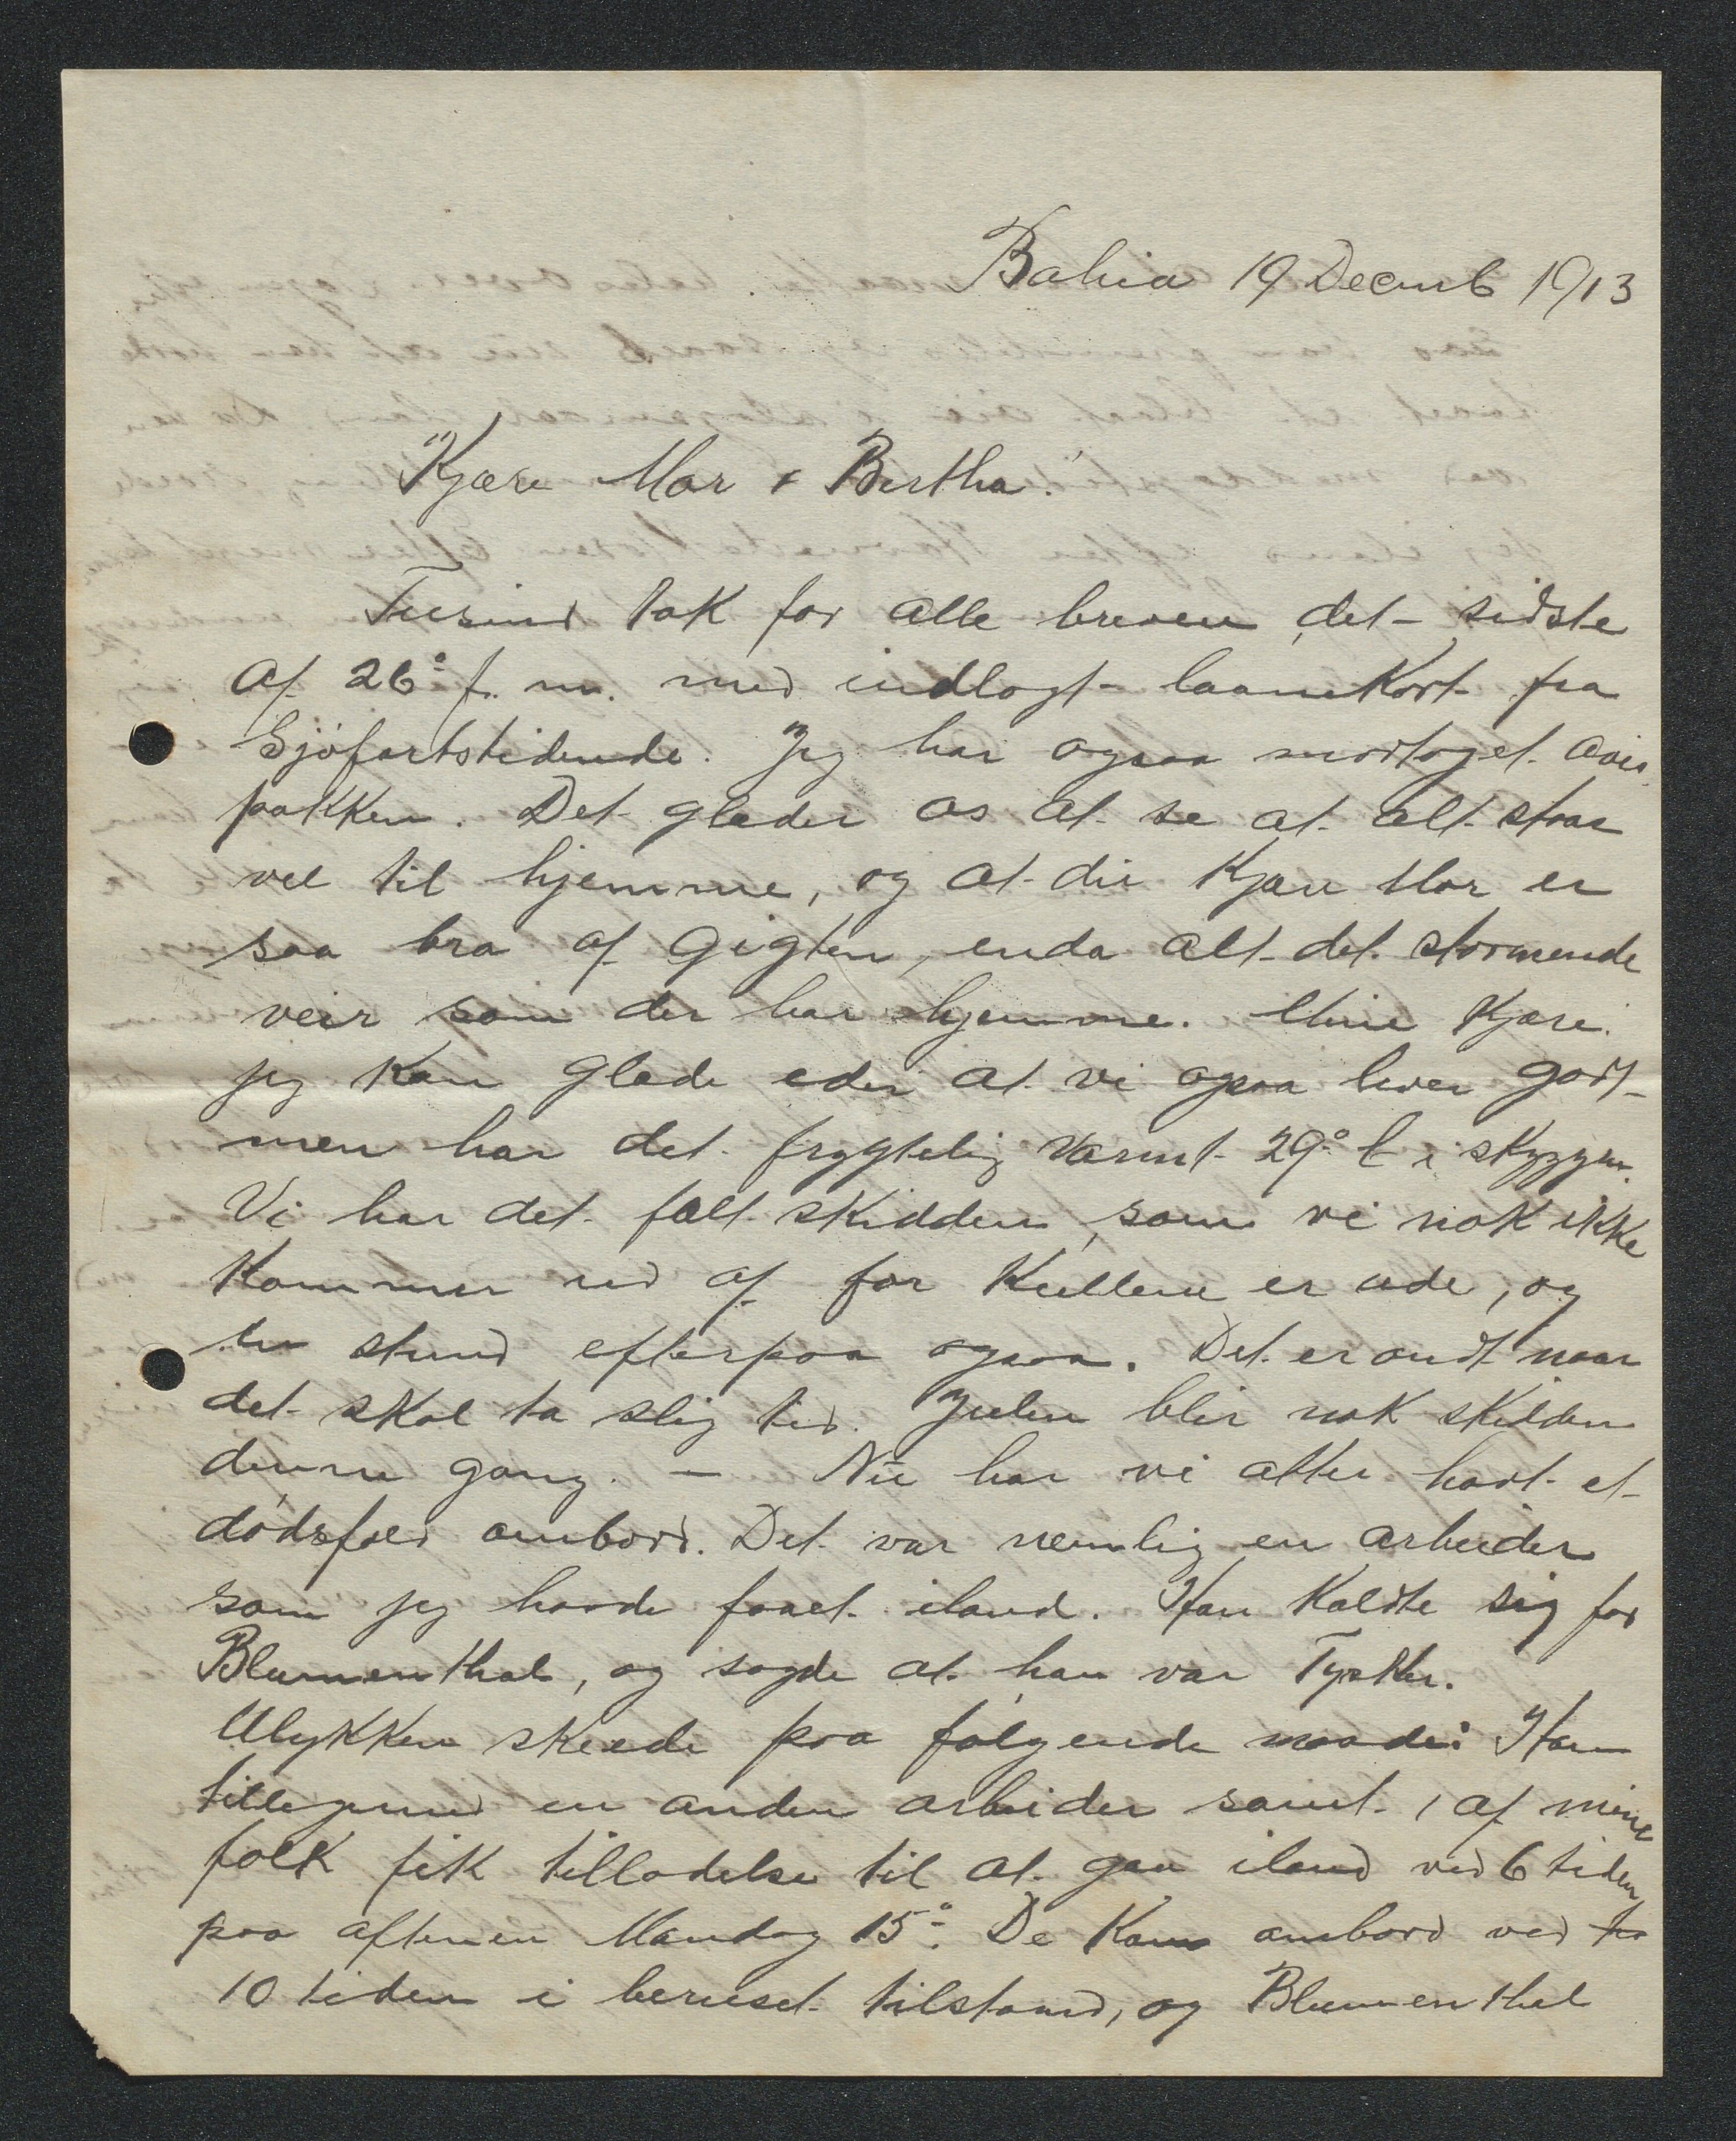 Bahia 19 Decemb 1913
Kjære Mor & Bertha!
Tusind tak for alle breven det sidste
af 26° f. m. med indlagt laanekort fra
Sjøfartstidende. Jeg har ogsaa modtaget avis
pakken. Det glæder os at se at alt staar
vel til hjemme, og at du kjære Mor er
saa bra af gigten, enda alt det stormende
veir som der har hjemme. Mine kjære
jeg kan glæde eder at vi ogsaa lever godt
men har det frygtelig varmt 29° C i skyggen.
Vi har det fælt skidden, som vi nok ikke
kommer ud af før kullene er ude, og
en stund efterpaa ogsaa. Det er ondt naar
det skal ta slig tid. Julen blir nok skidden
denne gang. — Nu har vi atter havt et
dødsfald ombord. Det var nemlig en arbeider
som jeg havde faaet iland. Han kaldte sig for
Blumenthal, og sagde at han var Tysker.
Ulykken skeede paa følgende maade: Han
tilligemed en anden arbeider samt 1 af mine
folk fik tilladelse til at gaa iland ved 6 tiden
paa aftenen Mandag 15°. De kom ombord ved
10 tiden i beruset tilstand, og Blumenthal